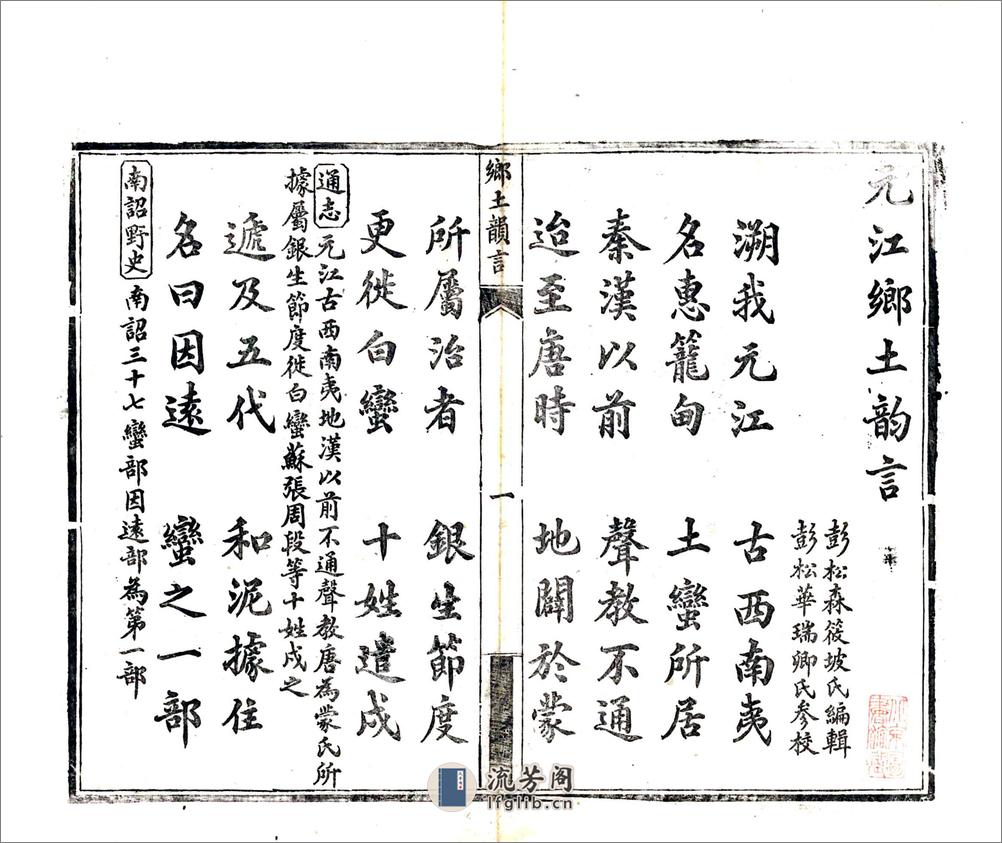 元江鄉土韵言
彭松森筱坡氏編輯
彭松華瑞卿氏參校
溯我元江 古西南夷
名惠籠甸 土蠻所居
秦漢以前 聲教不通
迨至唐時 地闢於蒙
鄉土韻言 一
所屬治者 銀生節度
更徙白蠻 十姓遣戍
通志 元江古西南夷地漢以前不通聲教唐為蒙氏所
據屬銀生節度徙白蠻蘇張周段等十姓戍之
遞及五代 和泥據住
名曰因遠 蠻之一部
南詔野史 南詔三十七蠻部因遠部為第一部
流芳阁
lfglib.cn